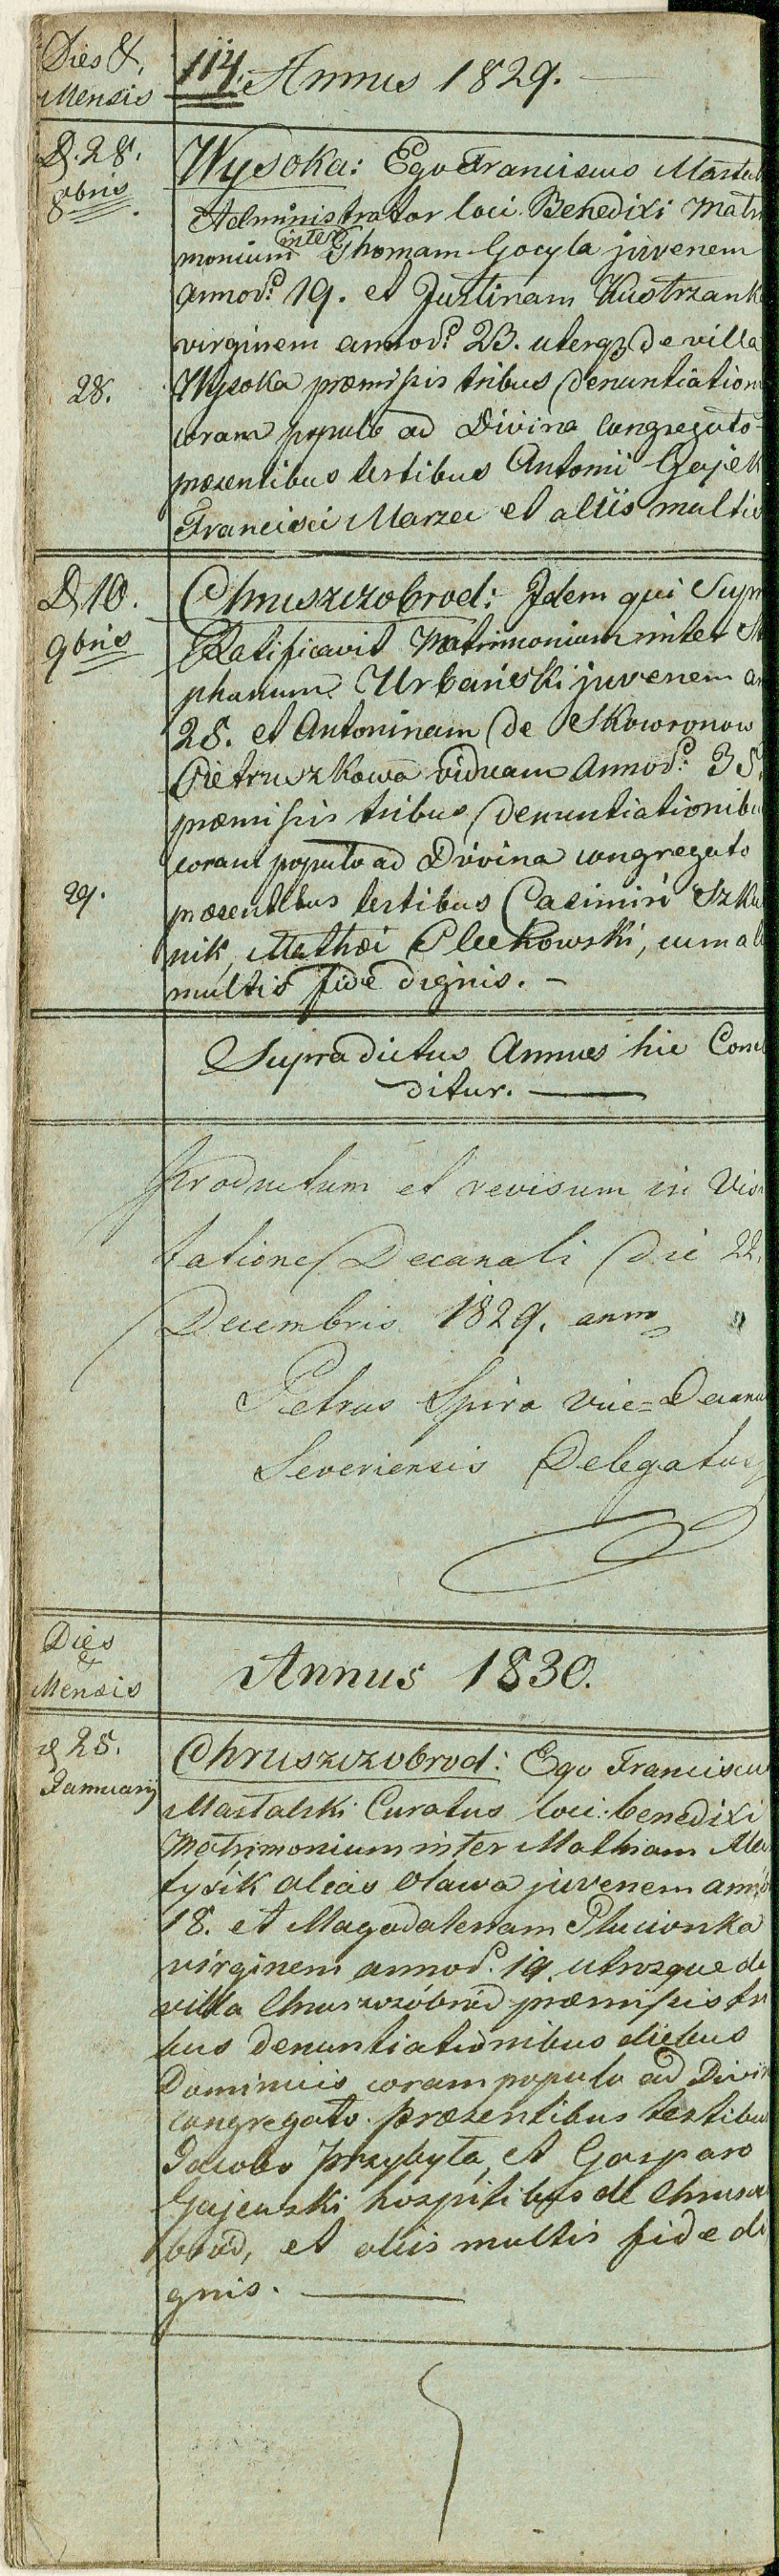 Dies &
Mensis
114. Annus 1829.
D. 28.
8bris
28.
Wysoka: Ego Franciscus Mastal
Administrator loci Benedixi Matri
monium inter Thomam Gocyla juvenem
annor: 19. et Justinam Kustrzank
virginem annor: 23. uterq3 de villa
Wysoka præmissis tribus denuntiation
coram populo ad Divina congregato
præsentibus testibus Antonii Gajek
Francisci Marzec et aliis multis
D 10.
9bris
29.
Chruszczobrod: Idem qui Supr
Ratificavit Matrimonium inter St
phanum Urbański juvenem an
28. et Antoninam de Skowronow
Pietruszkowa viduam Annor: 35.
præmissis tribus denuntiationibu
coram populo ad Divina congregato
præsentibus testibus Casimiri Szku
nik, Mathæi Pleckowski, cum al
multis fide dignis. –
Supradictus Annus hic Conclu
ditur. —
Productum et revisum in Visi
tatione Decanali die 22.
Decembris 1829. anno
Petrus Spira Vice=Decanu
Severiensis Delegatus
Dies
&
Mensis
Annus 1830.
d 25.
Januarij
Chruszczobrod: Ego Franciscu
Mastalski Curatus loci benedixi
Matrimonium inter Mathiam Ma
tysik alias Oława juvenem annor
18. et Magadalenam Plucionka
virginem annor. 19. utrosque de
villa Chruszczóbród præmissis tri
bus denuntiationibus diebus
Dominicis coram populo ad Divin
congregato præsentibus testibu
Jacobo Przybyła, et Gasparo
Gajewski hospitibus de Chruszcz
brod, et aliis multis fide di
gnis. —